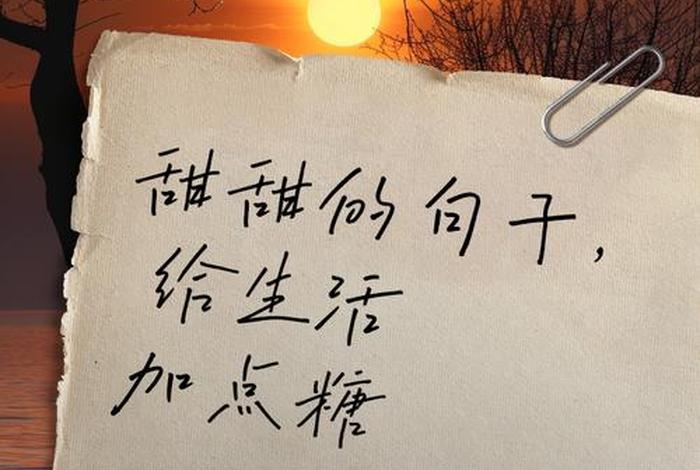 甜甜的句子,
给生活
加点糖